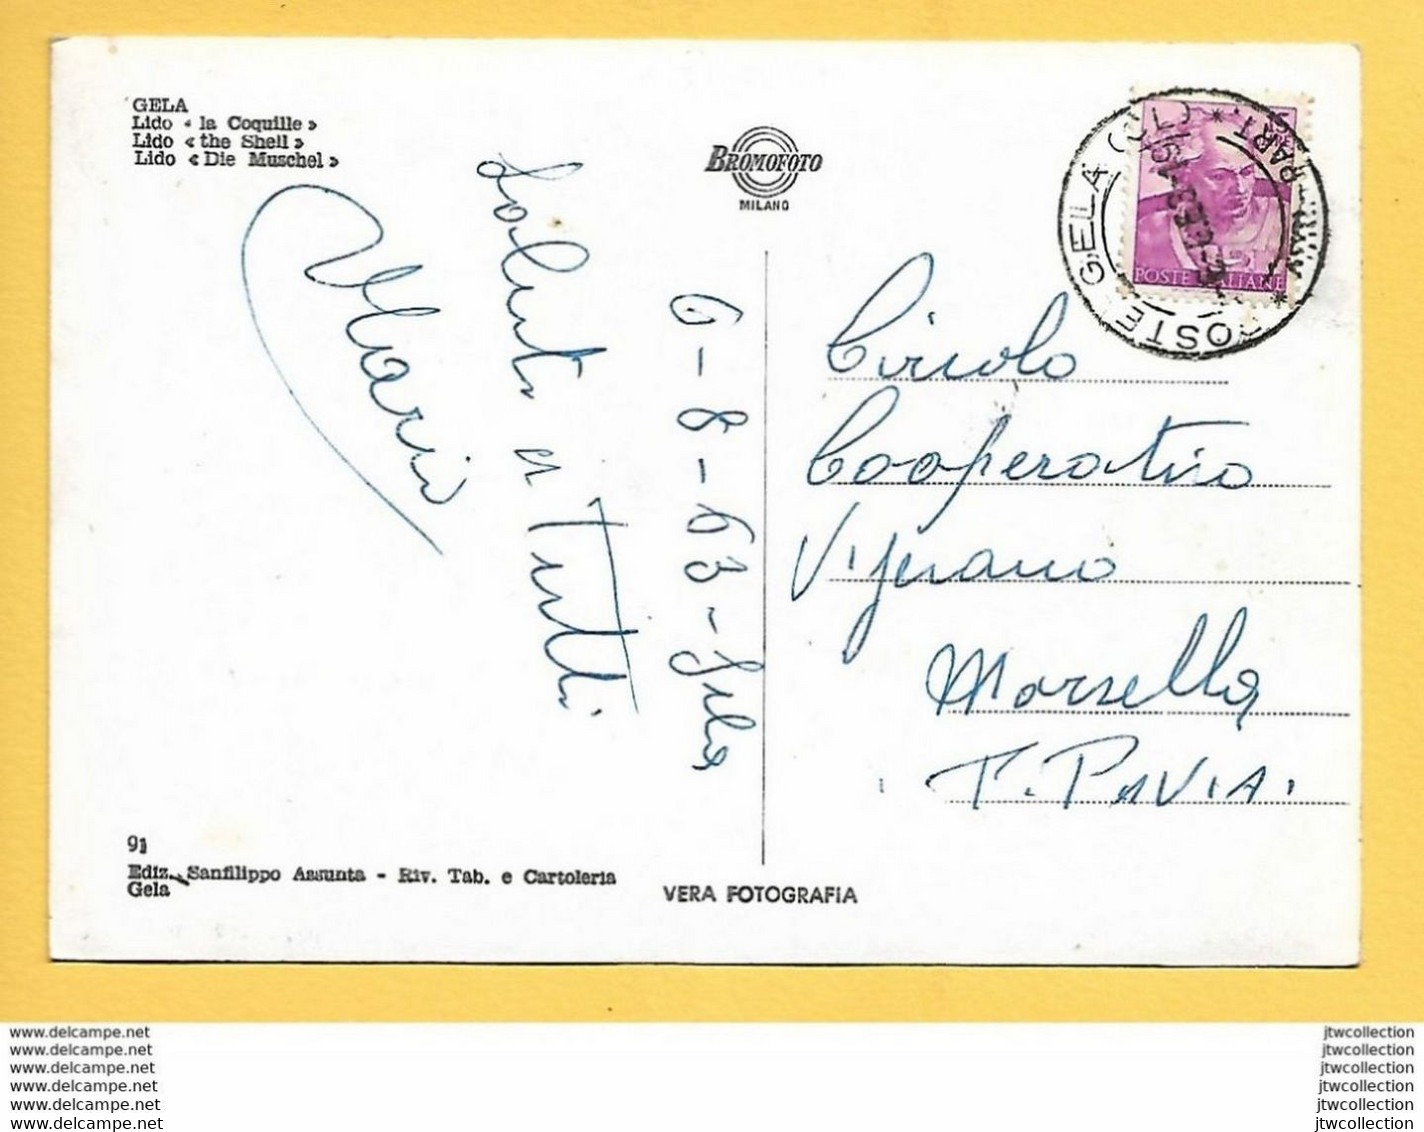 GELA
Lido « la Coquille »
Lido « the Shell »
Lido « Die Muschel »
BROMOFOTO
MILANO
POSTE GELA (CL)
POSTE ITALIANE
Saluti a tutti
Mario
6-8-63-Gela
Circolo
Cooperativo
Morsella
P. PAVIA.
91
Ediz. Sanfilippo Assunta - Riv. Tab. e Cartoleria
Gela
VERA FOTOGRAFIA
www.delcampe.net
www.delcampe.net
www.delcampe.net
www.delcampe.net
www.delcampe.net
www.delcampe.net
jtwcollection
jtwcollection
jtwcollection
jtwcollection
jtwcollection
jtwcollection